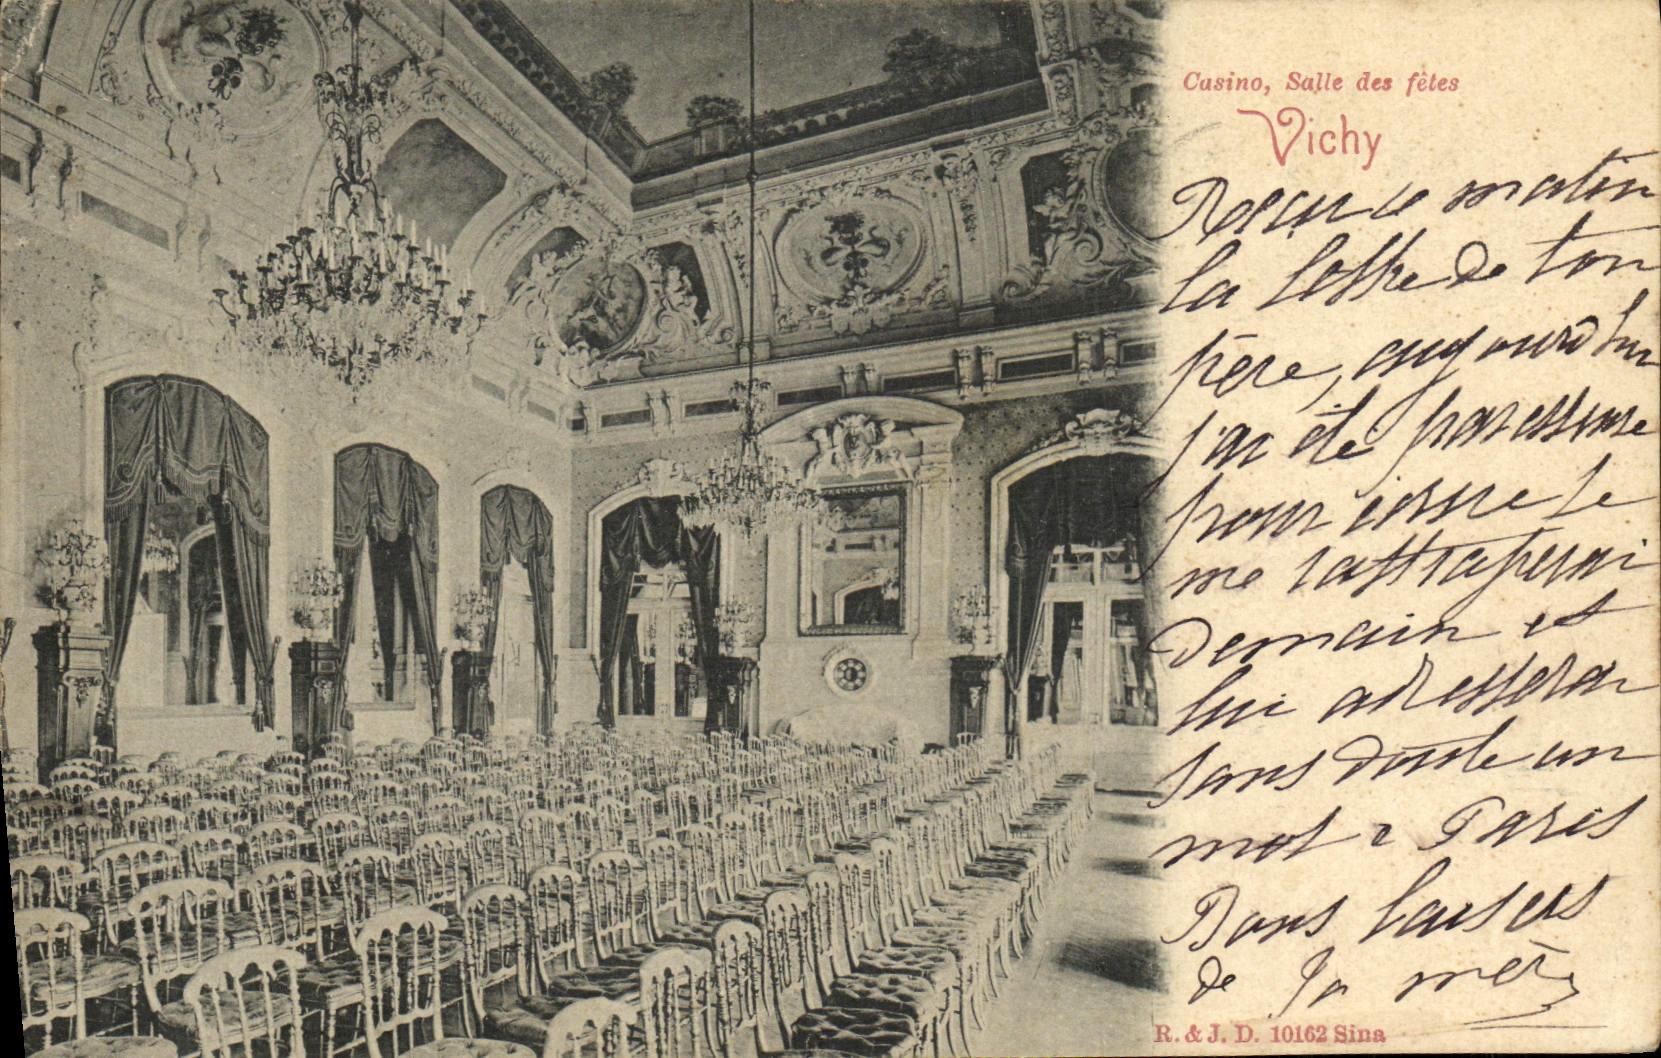 Casino, Salle des fêtes
Vichy
Reçu ce matin
la lettre de ton
père, aujourd'hui
j'ai été paresseuse
pour écrire je
me rattraperai
demain et
lui adresserai
sans doute un
mot à Paris
Bons baisers
de ta mère
R. & J. D. 10162 Sina